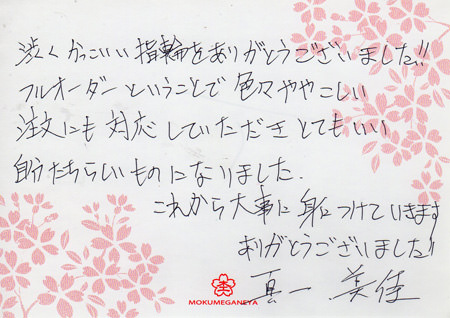 渋くかっこいい指輪をありがとうございました!!
フルオーダーということで色々ややこしい
注文にも対応していただきとてもいい
自分たちらしいものになりました.
これから大事に身につけていきます
ありがとうございました!!
真一 美佳
MOKUMEGANEYA